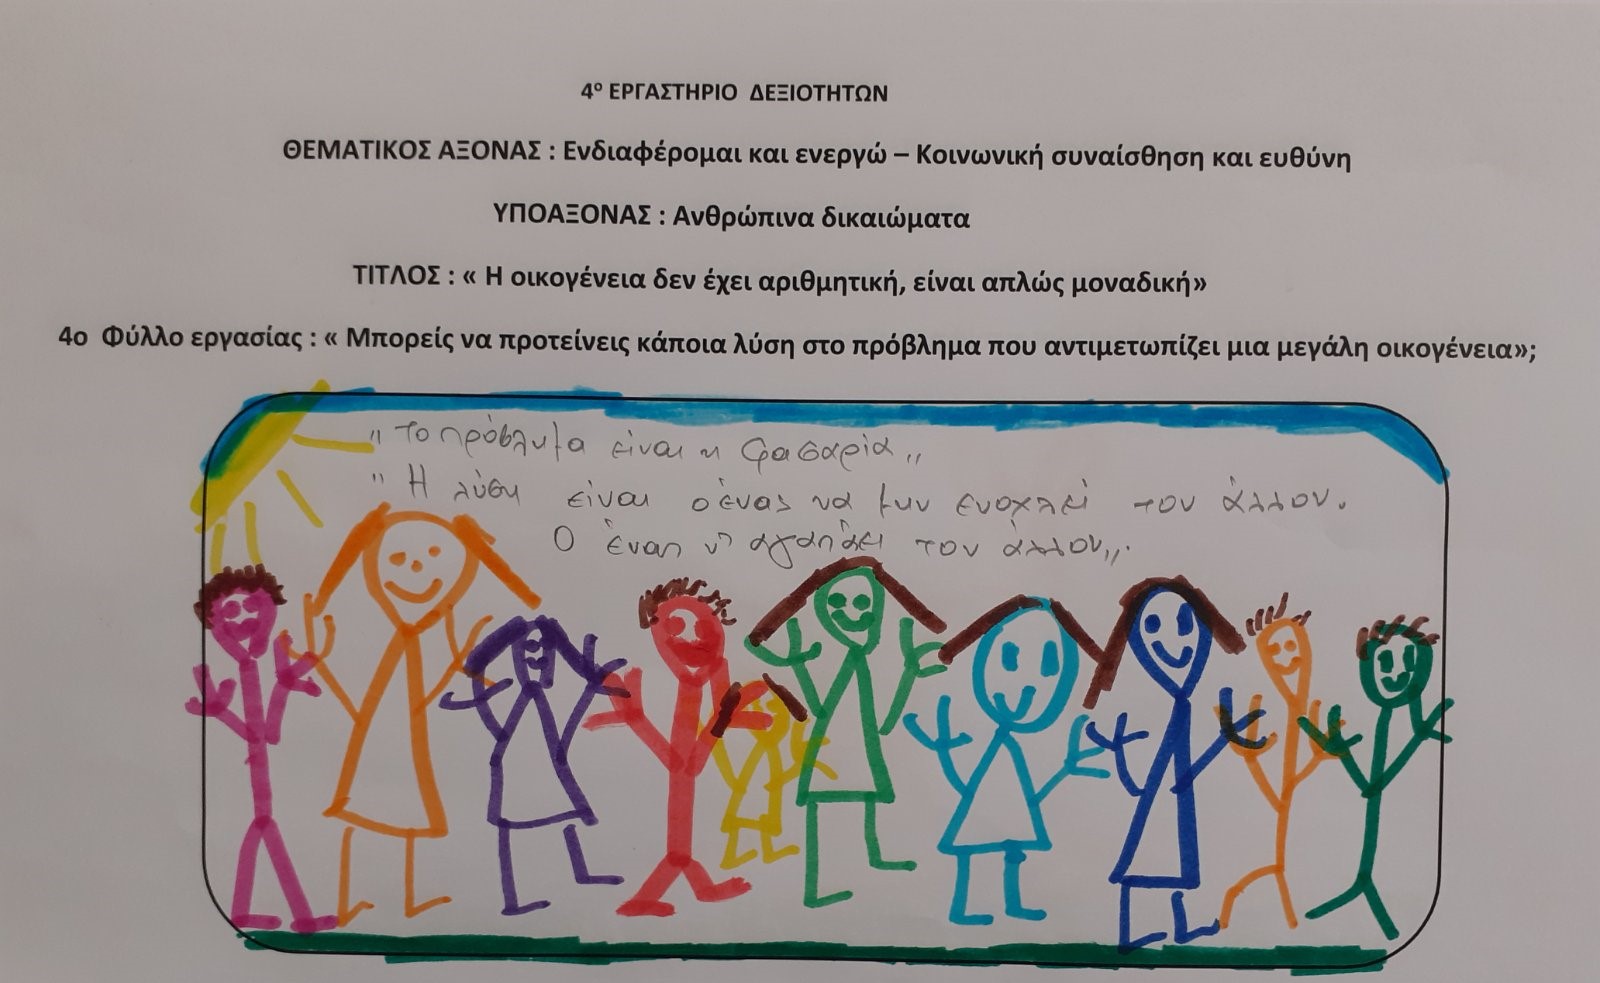 4ο ΕΡΓΑΣΤΗΡΙΟ ΔΕΞΙΟΤΗΤΩΝ
ΘΕΜΑΤΙΚΟΣ ΑΞΟΝΑΣ : Ενδιαφέρομαι και ενεργώ – Κοινωνική συναίσθηση και ευθύνη
ΥΠΟΑΞΟΝΑΣ : Ανθρώπινα δικαιώματα
ΤΙΤΛΟΣ : « Η οικογένεια δεν έχει αριθμητική, είναι απλώς μοναδική»
4ο Φύλλο εργασίας : « Μπορείς να προτείνεις κάποια λύση στο πρόβλημα που αντιμετωπίζει μια μεγάλη οικογένεια»;
"Το πρόβλημα είναι η φασαρία"
"Η λύση είναι ο ένας να μην ενοχλεί τον άλλον.
Ο ένας ν' αγαπάει τον άλλον".